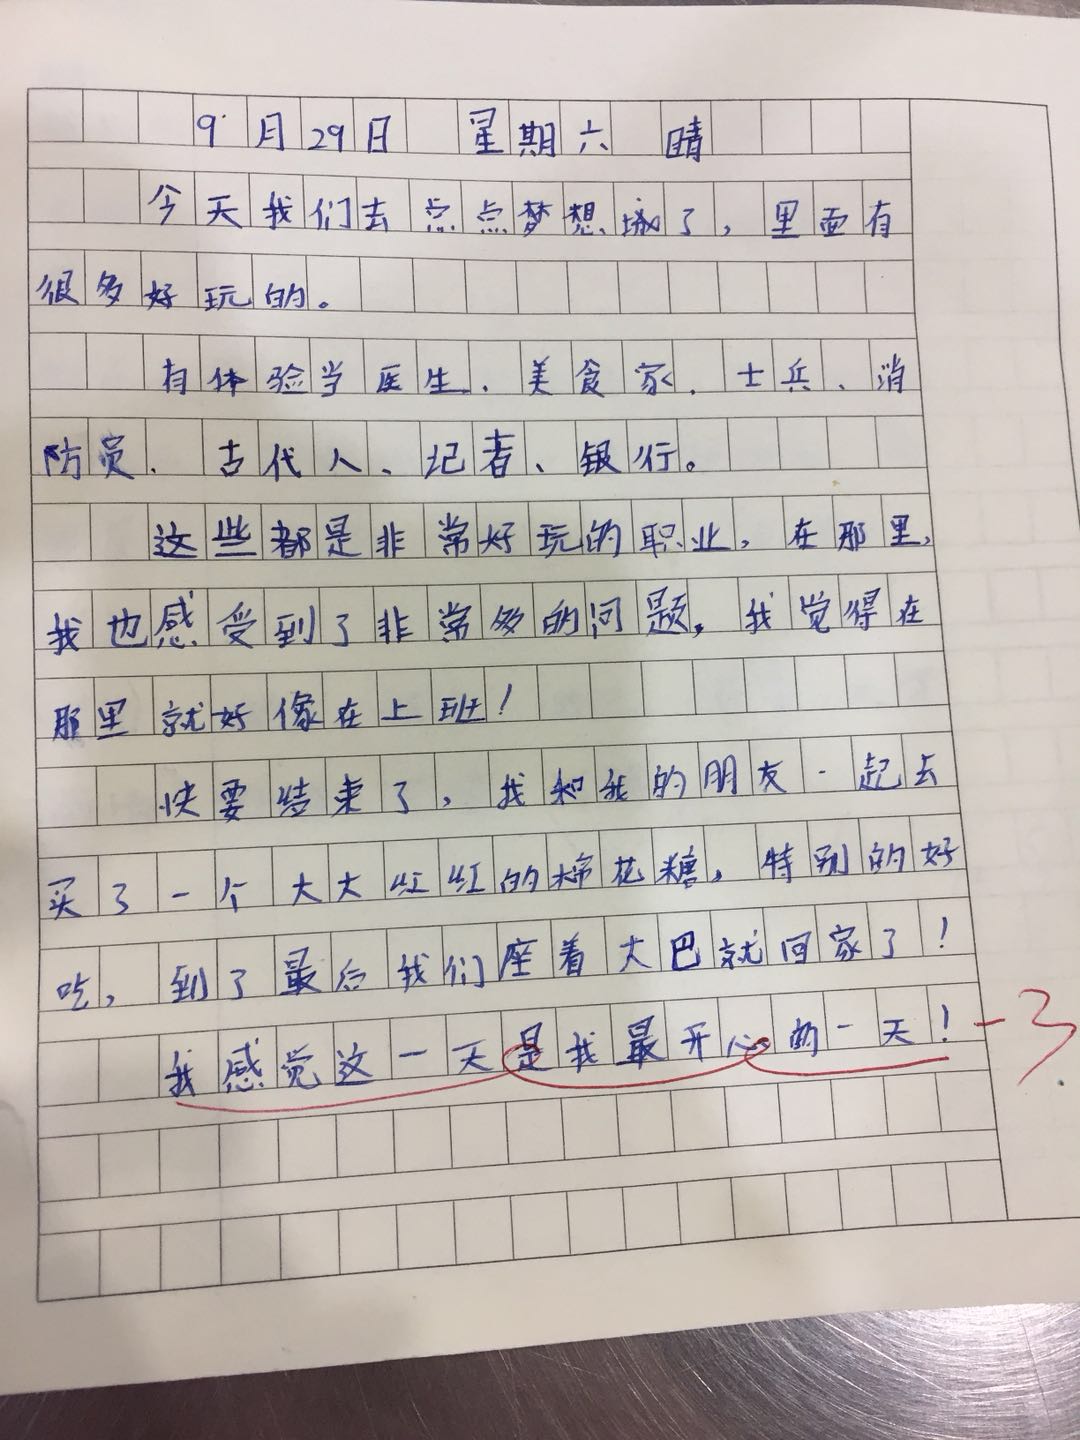 9月29日 星期六 晴
今天我们去点点梦想城了，里面有
很多好玩的。
有体验当医生、美食家、士兵、消
防员、古代人、记者、银行。
这些都是非常好玩的职业，在那里，
我也感受到了非常多的问题，我觉得在
那里就好像在上班！
快要结束了，我和我的朋友一起去
买了一个大大红红的棉花糖，特别的好
吃，到了最后我们座着大巴就回家了！
我感觉这一天是我最开心的一天！-3